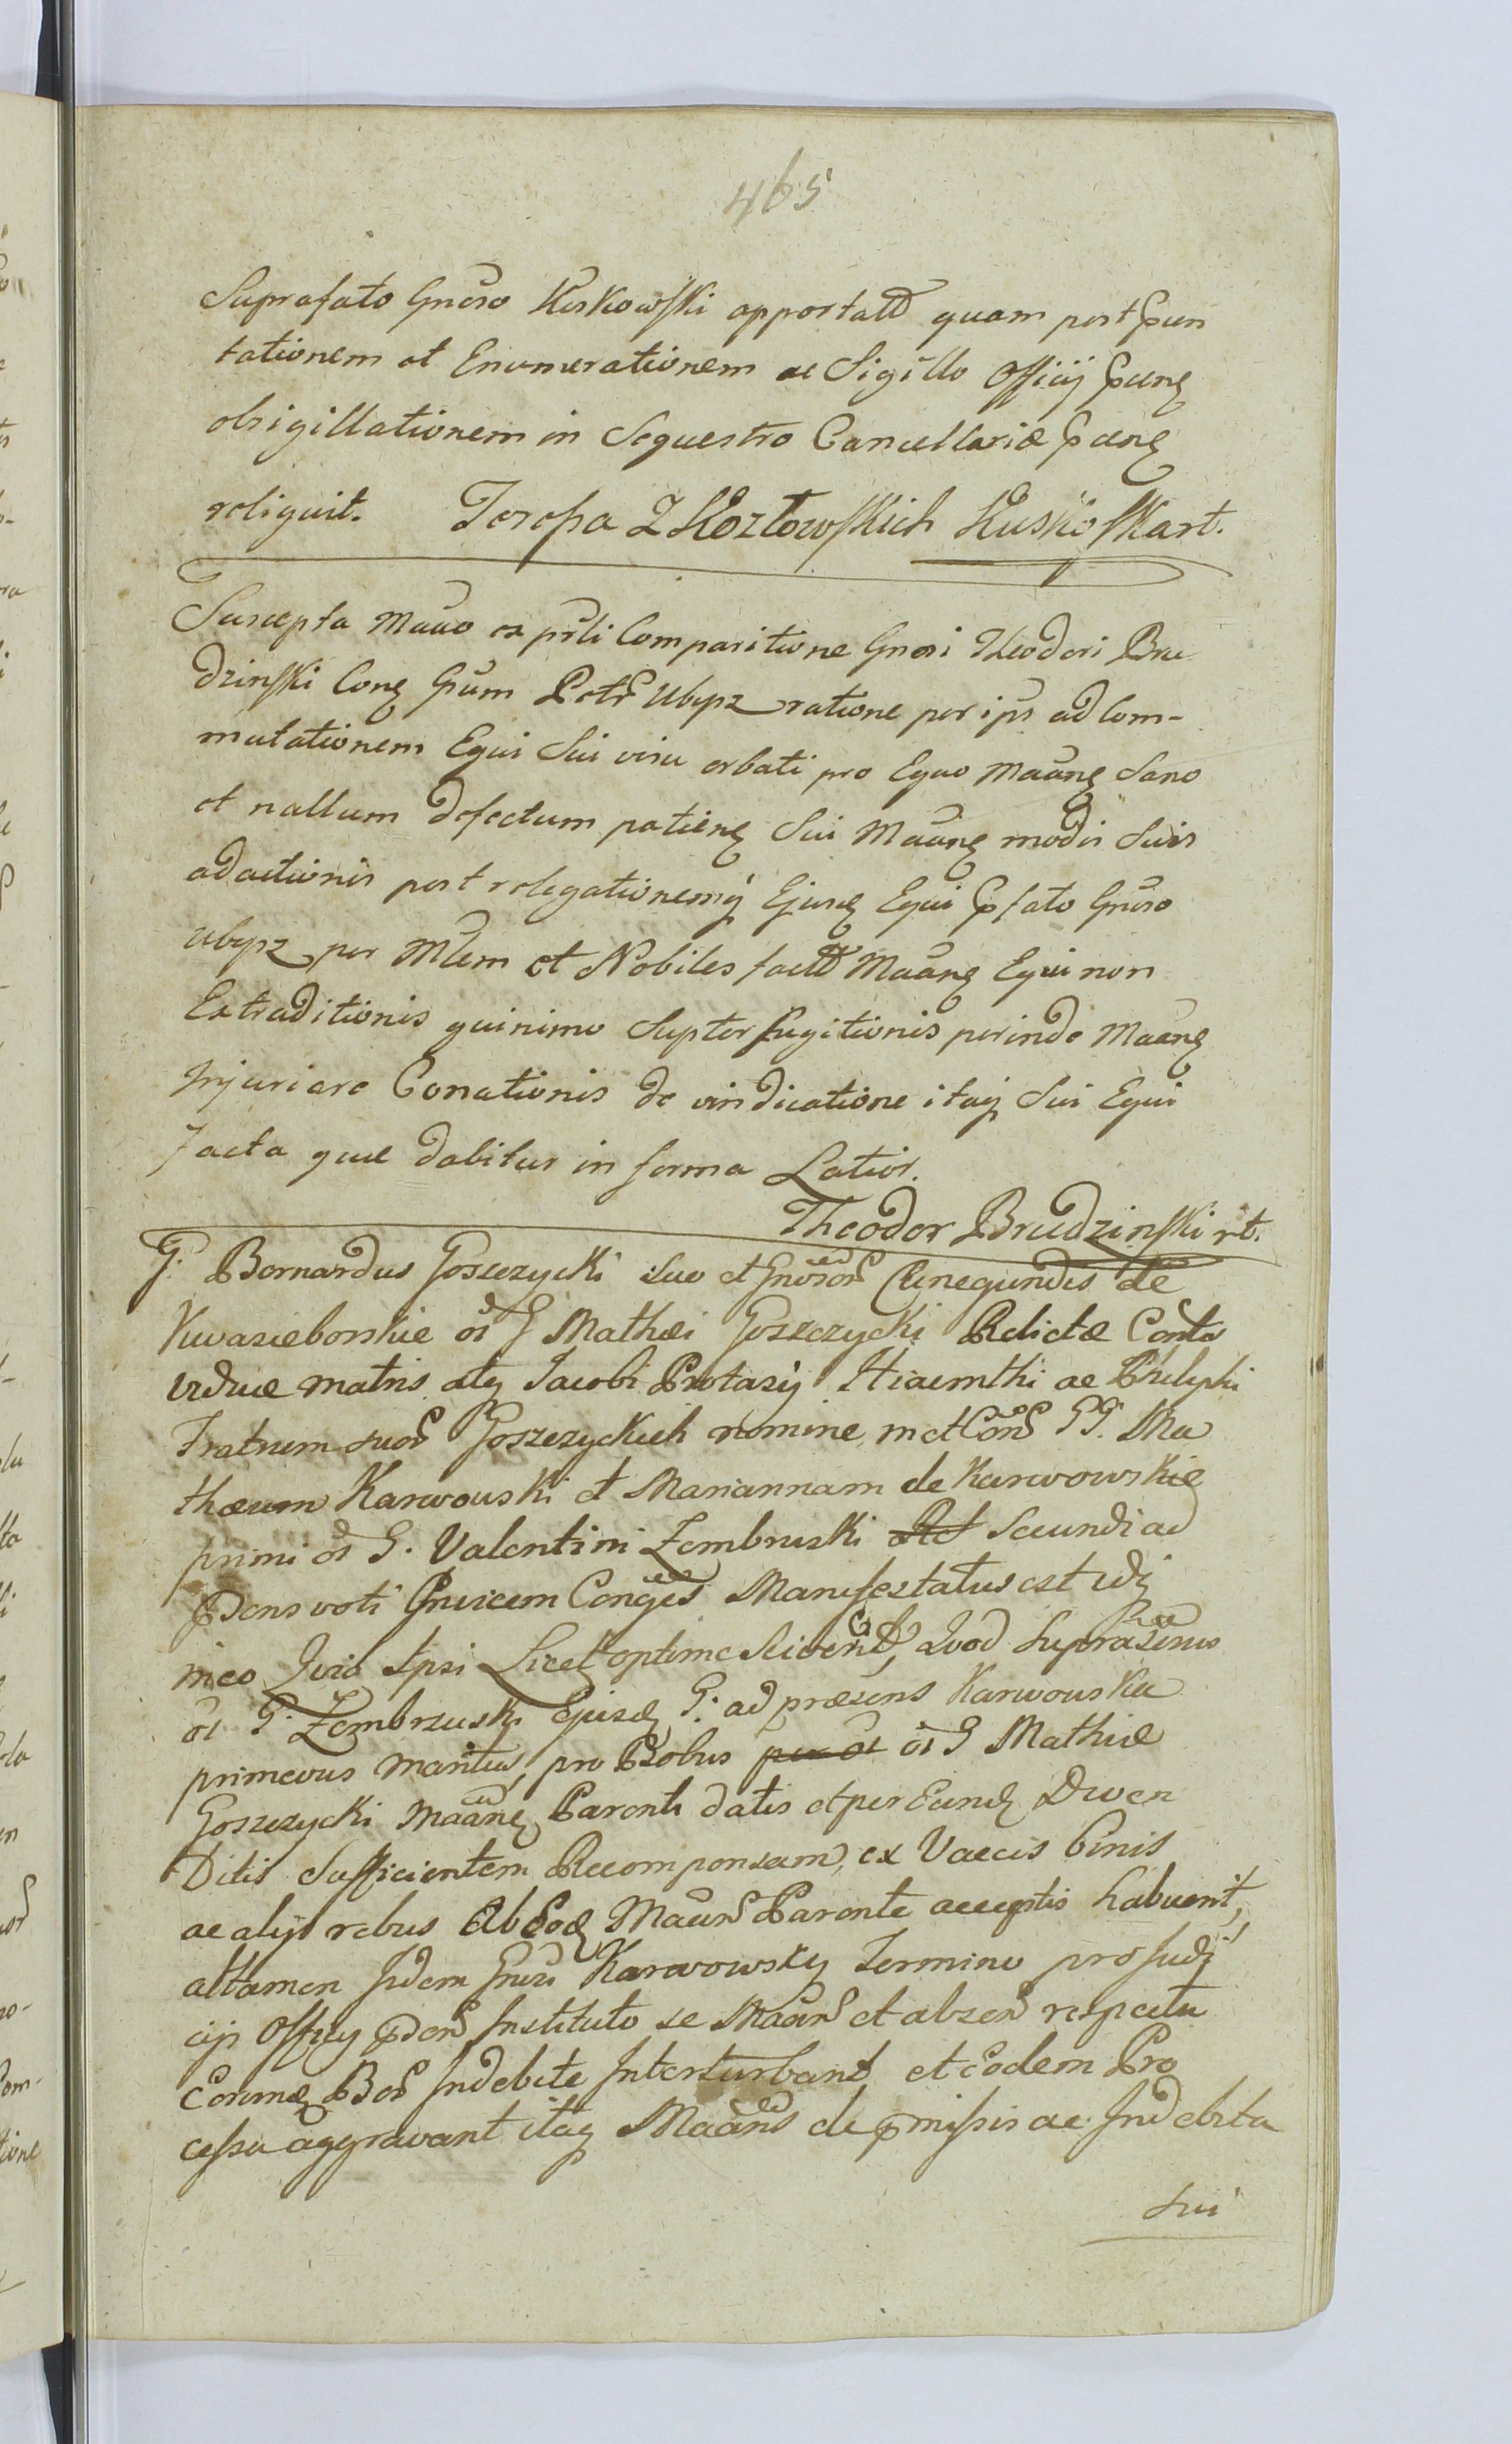 465
Suprafato Gnoso Kuskowski apportatd quam post pun
tationem et Enumerationem ac Sigillo Officij pveng
obsigillationem in Sequestro Cancellariæ pveng
reliquit. Teressa Z Kozłowskich Kuskoskart.
Suscepta Mano ex prsli Comparitione Gnosi Theodori Bru
dzinski Cong Grum Petr Ubysz ratione per ips ad Com-
mutationem Equi Sui visu orbati pro Equo Maang Sano
et nullum defectum patieng Sui Maang modis Suis
adactionis post relegationemq Ejusq Equi pfato Gnoso
Ubysz per Mlem et Nobiles factd Maang Equi non
Extraditionis quinimo Supterfugitionis perinde Maang
Injuriare Conationis de vindicatione itaq Sui Equi
facta quæ dabitur in forma Latior.
Theodor Brudzinski rt.
G. Bernardus Goszczycki suo et Gnosor Cunegundis de
Kuvasieborskie oi G Mathæi Goszczycki Relictæ Conts
vrduæ matris atq Jacobi Protasij Hiacinthi ac Philyphi
Fratrum suor Goszczyckich nomine, mct Con GG. Ma
thæum Karwouski et Mariannam de Karwowskie
primi oi G. Valentini Zembruski Secundi ad
pdens voti Gnvicem Conges Manifestatus est idq
in eo Quia Ipsi Licet optime Sciverint, Quod Suprasēnus
oi G. Zembrzuski Ejusd, G. ad præsens Karwouska
primevus maritus, pro Bobus oi G Mathiæ
Goszczycki Maang Parenti datis et per Eund Diven
Ditis Sufficientem Recompensam, ex Vaccis binis
ac alijs rebus Ab Eod Maan Parente acceptis habuerit,
attamen Jidem Gnosi Karwowscy Termino pro Judi
cijs Officy pden Instituto se Maan et absen respectu
Corund Bo Indebite Interturbant et Eodem Pro
cessu aggravant itaq Maans de pmissis ac Indebita
Sui